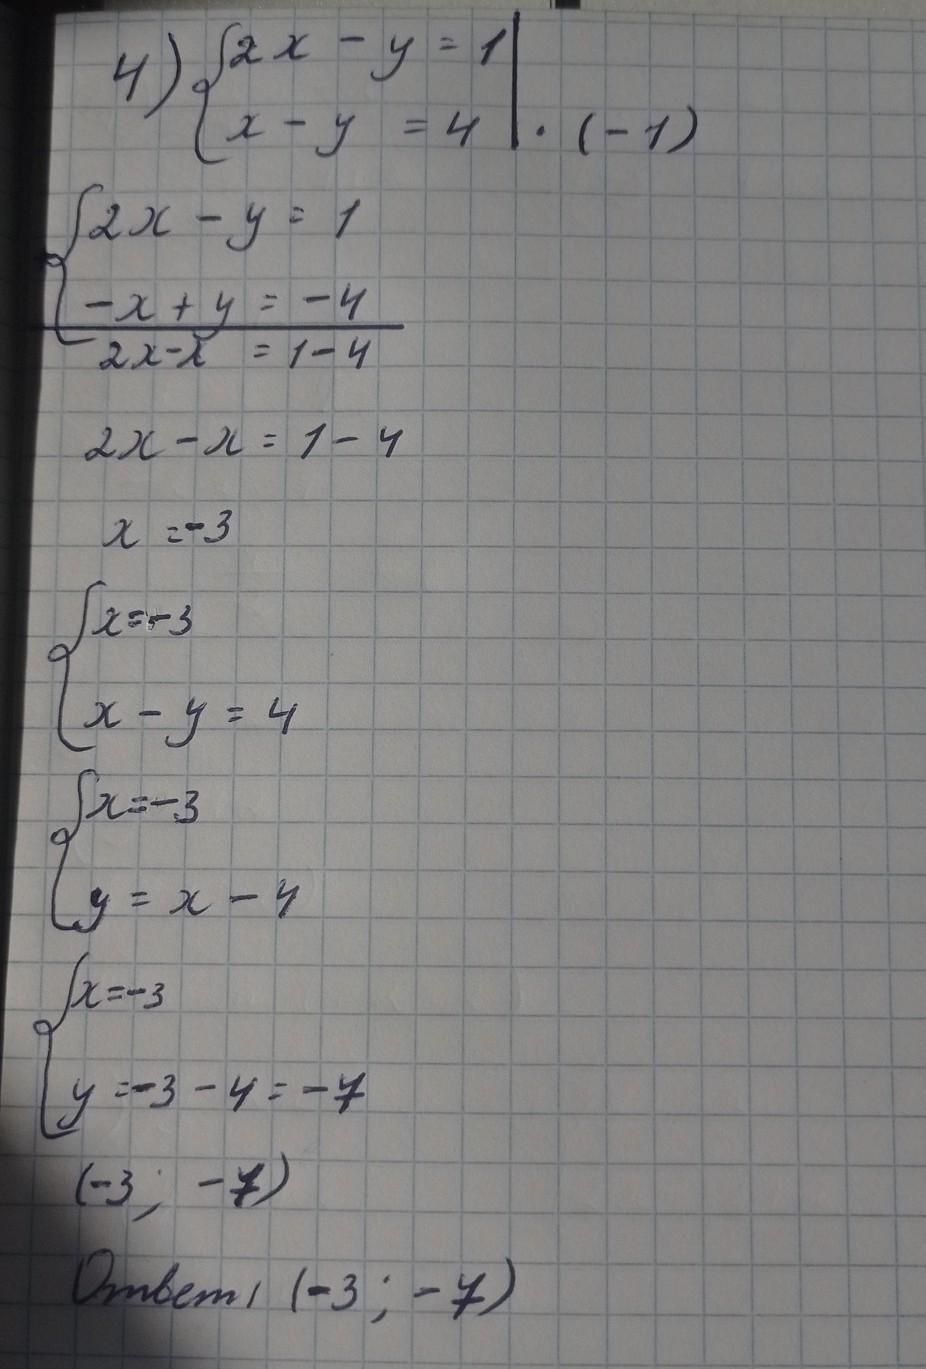 4) {2x - y = 1|
{x - y = 4| · (-1)
{2x - y = 1
{-x + y = -4
2x-x = 1-4
2x - x = 1 - 4
x = -3
{x = -3
{x - y = 4
{x = -3
{y = x - 4
{x = -3
{y = -3 - 4 = -7
(-3; -7)
Ответ: (-3; -7)